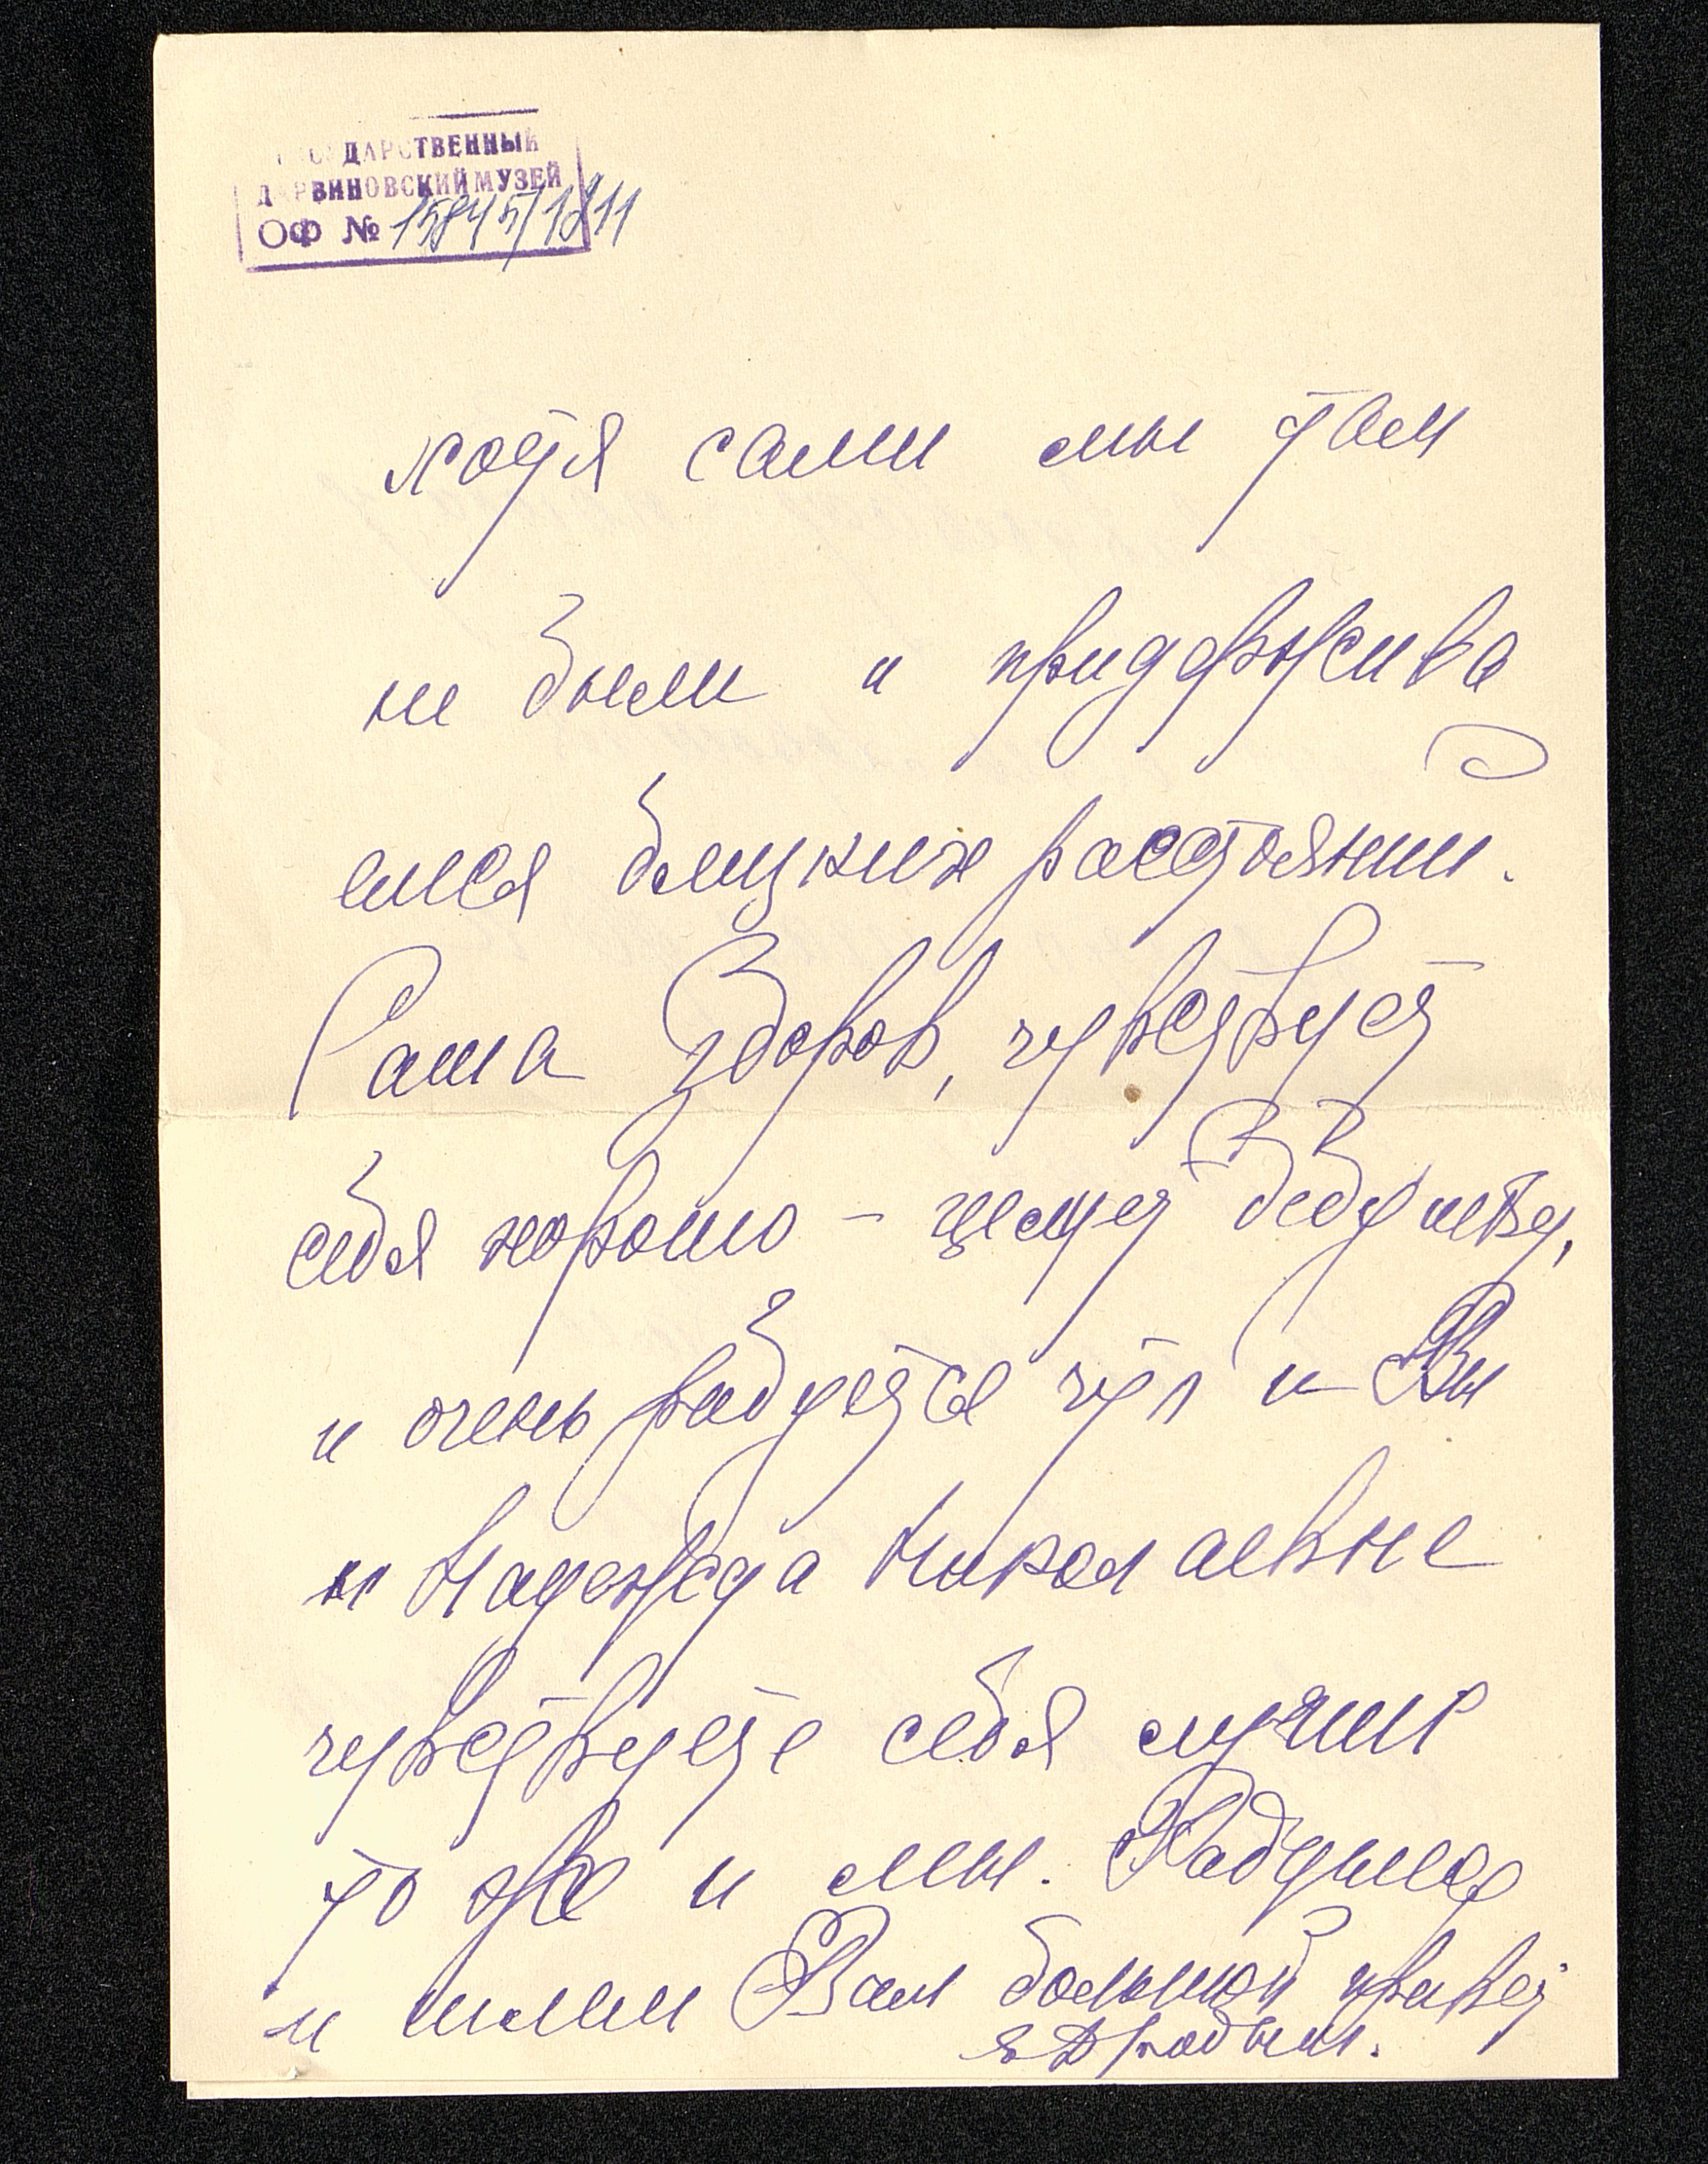 ГОСУДАРСТВЕННЫЙ
ДАРВИНОВСКИЙ МУЗЕЙ
ОФ № 15845/1811
хотя сами мы там
не были и придержива
лися близких расстояний.
Саша здоров, чувствует
себя хорошо - целует Дедушку,
и очень радуется что и Вы
и Надежда Николаевне
чувствуете себя лучше
то же и мы. Радуемся
и шлем Вам большой привет